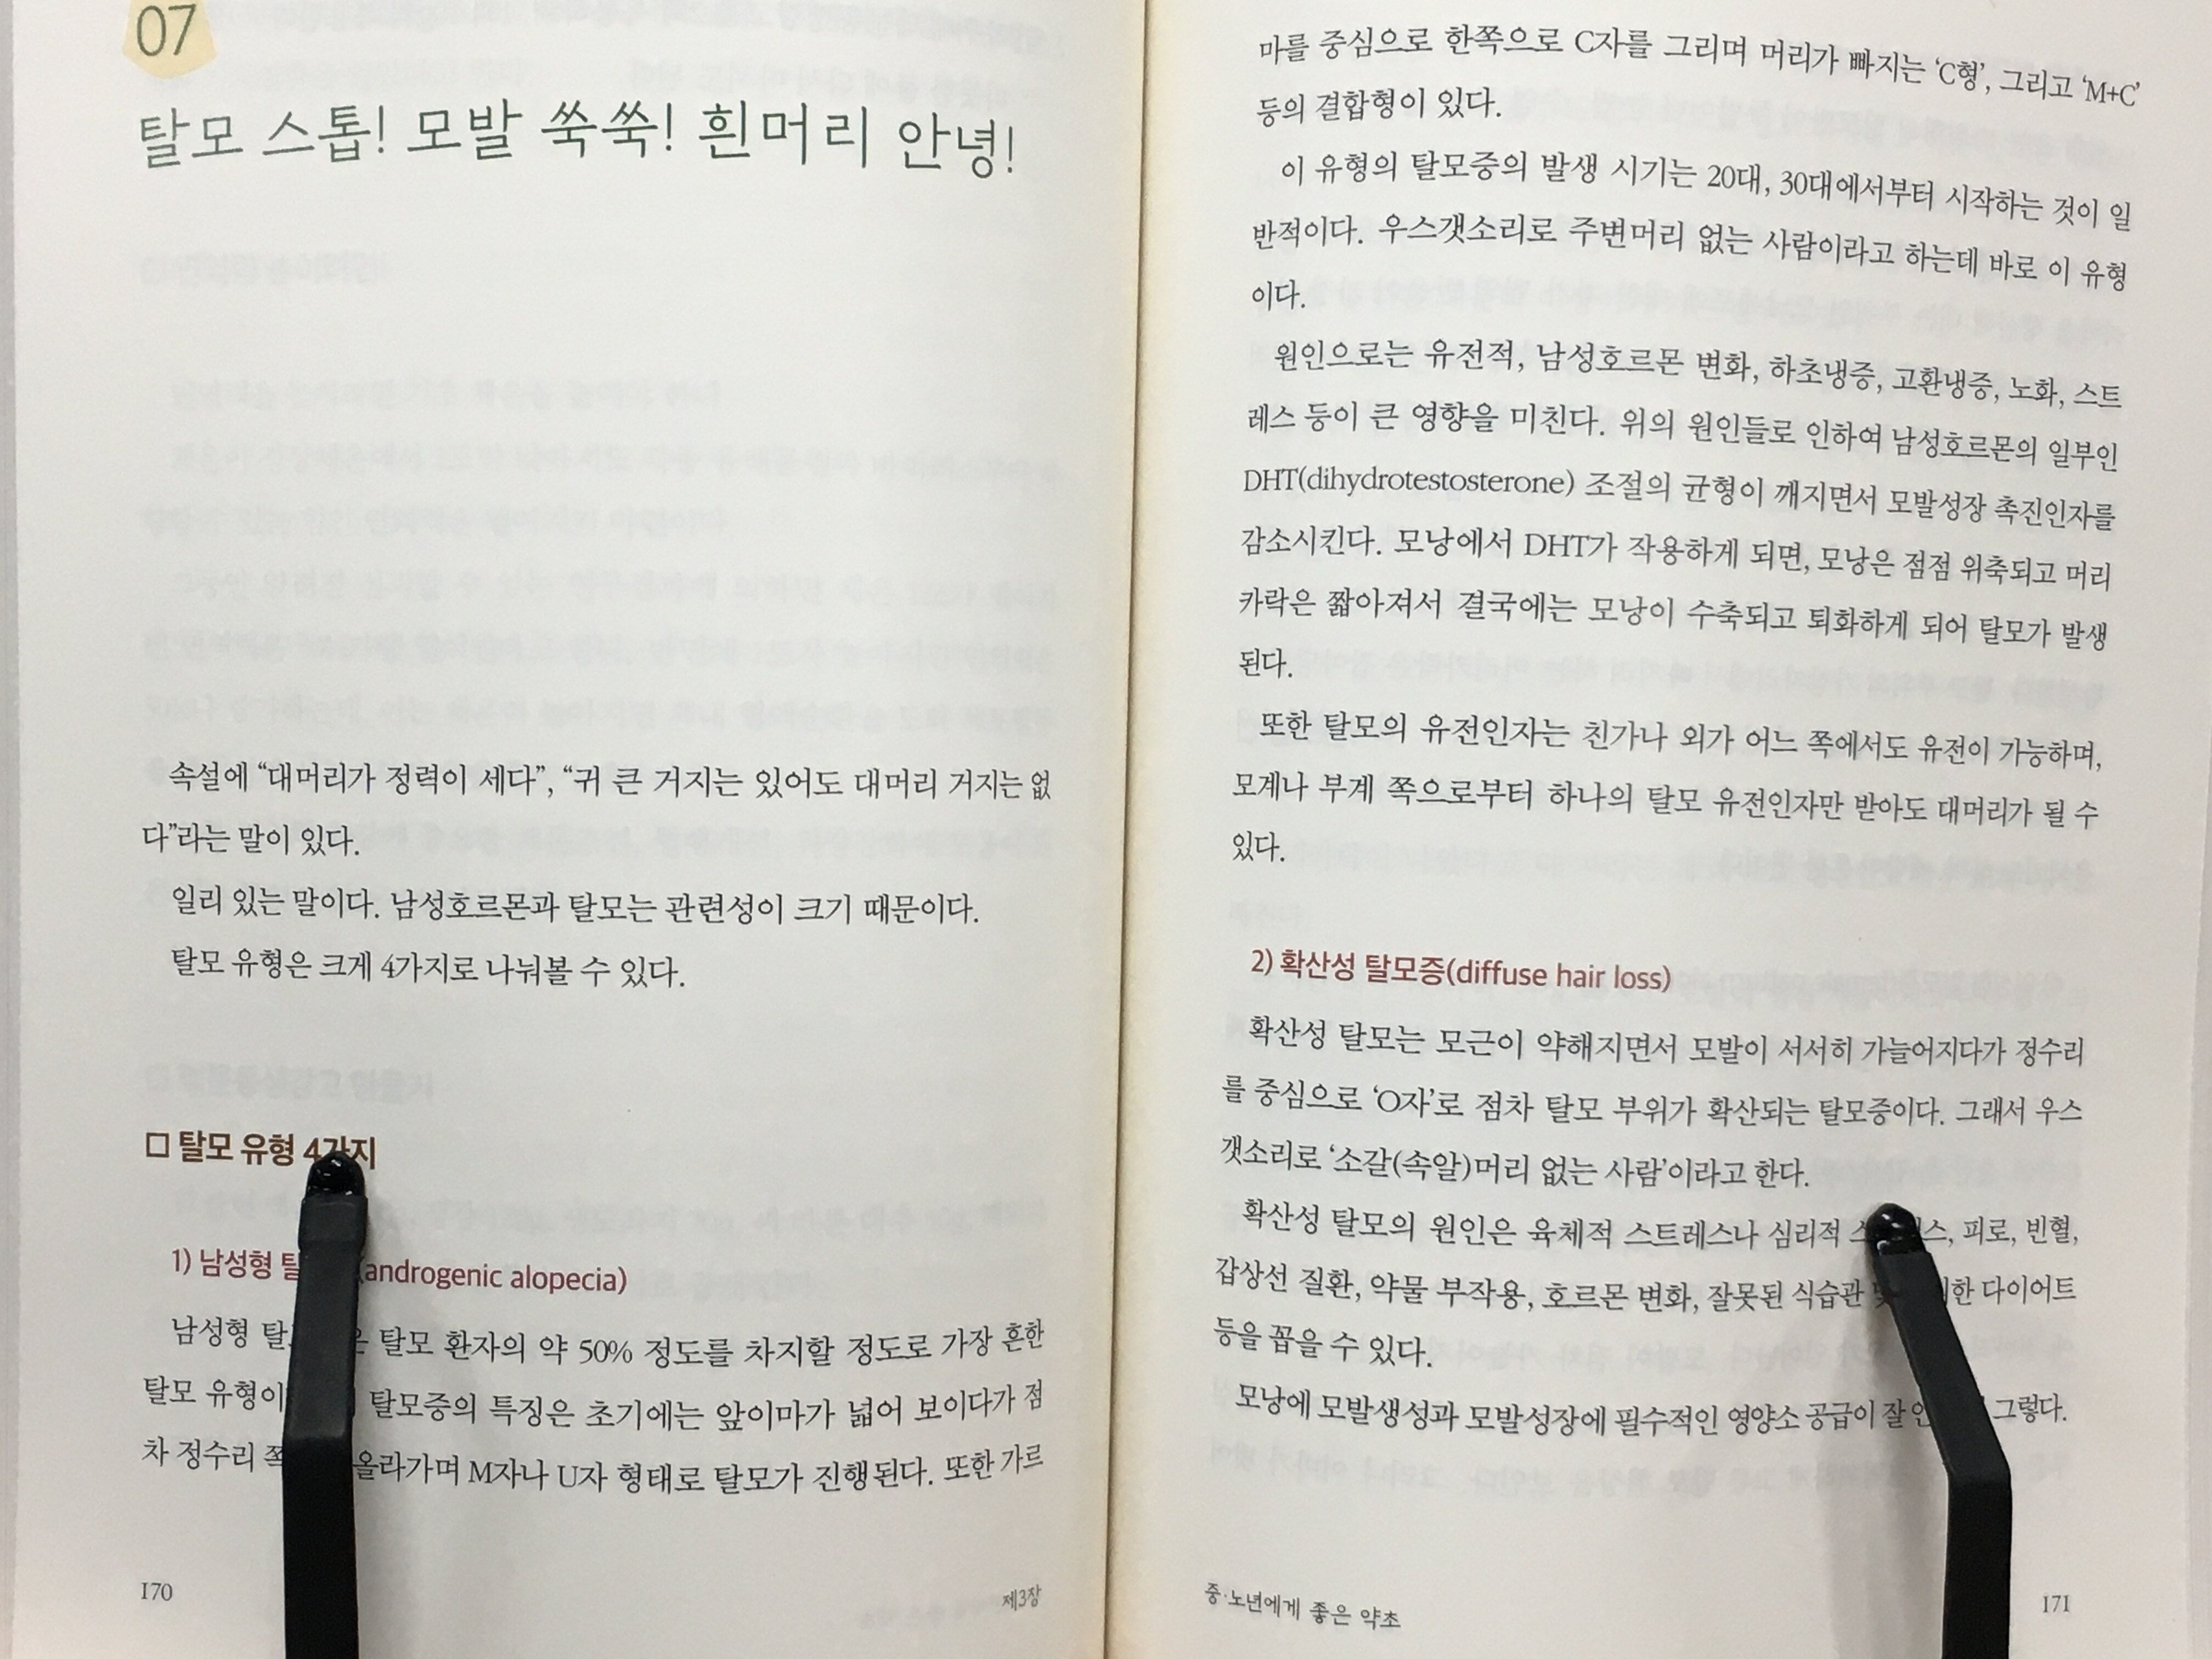 07
탈모 스톱! 모발 쑥쑥! 흰머리 안녕!
속설에 “대머리가 정력이 세다”, “귀 큰 거지는 있어도 대머리 거지는 없
다”라는 말이 있다.
일리 있는 말이다. 남성호르몬과 탈모는 관련성이 크기 때문이다.
탈모 유형은 크게 4가지로 나눠볼 수 있다.
□ 탈모 유형 4가지
1) 남성형 (androgenic alopecia)
남성형 탈모 환자의 약 50% 정도를 차지할 정도로 가장 흔한
탈모 탈모증의 특징은 초기에는 앞이마가 넓어 보이다가 점
차 정수리 올라가며 M자나 U자 형태로 탈모가 진행된다. 또한 가르
170
제3장
마를 중심으로 한쪽으로 C자를 그리며 머리가 빠지는 ‘C형’, 그리고 ‘M+C’
등의 결합형이 있다.
이 유형의 탈모증의 발생 시기는 20대, 30대에서부터 시작하는 것이 일
반적이다. 우스갯소리로 주변머리 없는 사람이라고 하는데 바로 이 유형
이다.
원인으로는 유전적, 남성호르몬 변화, 하초냉증, 고환냉증, 노화, 스트
레스 등이 큰 영향을 미친다. 위의 원인들로 인하여 남성호르몬의 일부인
DHT(dihydrotestosterone) 조절의 균형이 깨지면서 모발성장 촉진인자를
감소시킨다. 모낭에서 DHT가 작용하게 되면, 모낭은 점점 위축되고 머리
카락은 짧아져서 결국에는 모낭이 수축되고 퇴화하게 되어 탈모가 발생
된다.
또한 탈모의 유전인자는 친가나 외가 어느 쪽에서도 유전이 가능하며,
모계나 부계 쪽으로부터 하나의 탈모 유전인자만 받아도 대머리가 될 수
있다.
2) 확산성 탈모증(diffuse hair loss)
확산성 탈모는 모근이 약해지면서 모발이 서서히 가늘어지다가 정수리
를 중심으로 ‘O자’로 점차 탈모 부위가 확산되는 탈모증이다. 그래서 우스
갯소리로 ‘소갈(속알)머리 없는 사람’이라고 한다.
확산성 탈모의 원인은 육체적 스트레스나 심리적 피로, 빈혈,
갑상선 질환, 약물 부작용, 호르몬 변화, 잘못된 식습관 다이어트
등을 꼽을 수 있다.
모낭에 모발생성과 모발성장에 필수적인 영양소 공급이 잘 그렇다.
중·노년에게 좋은 약초
171